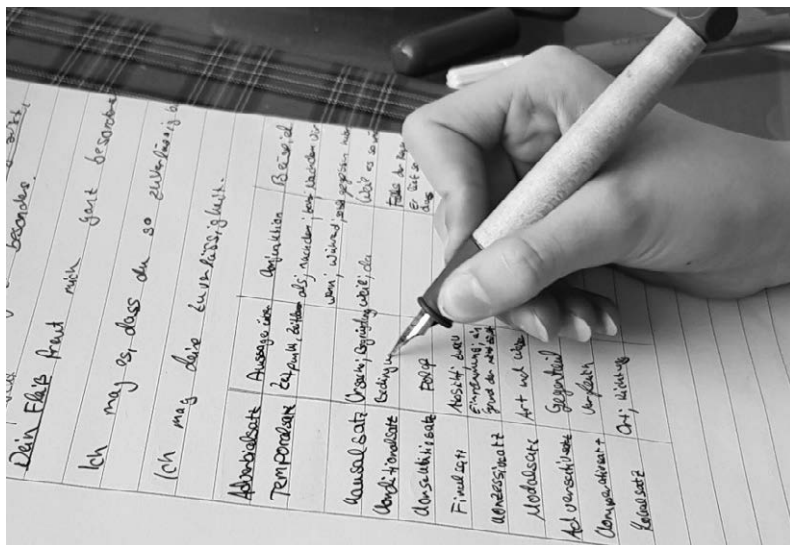 besonders.
Dein Fleiß freut mich ganz besonders
Ich mag es, dass du so zuverlässig b
Ich mag deine Zuverlässigkeit.
Adverbialsatz Aussage über Konjunktion Beispiel
Temporalsatz Zeitpunkt, als, nachdem, bevor Nachdem wir
wenn, während,
Kausalsatz Ursache, Begründung weil, da Weil es so
Konditionalsatz Bedingun Falls der
Konsekutivsatz Folge Er lief so
dass
Finalsatz Absicht, Zweck
Konzessivsatz Einräumung,
Grund der
Modalsatz Art und Weise
Adversativsatz Gegenteil
Komparativsatz Vergleich
Lokalsatz Ort, Richtung